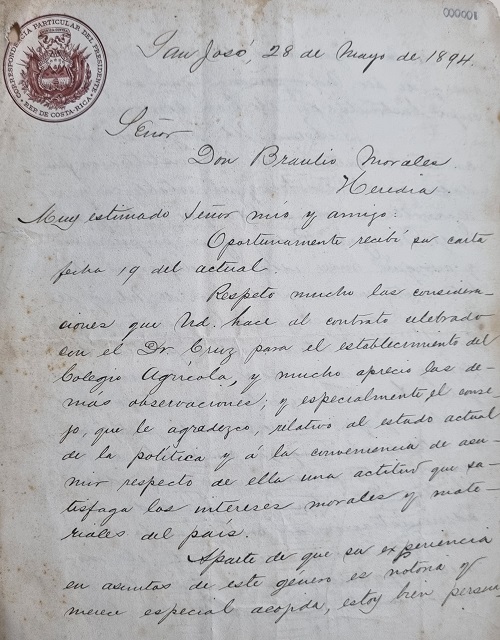 000001
CORRESPONDENCIA PARTICULAR DEL PRESIDENTE
REP. DE COSTA-RICA
San José, 28 de Mayo de 1894.
Señor
Don Braulio Morales.
Heredia.
Muy estimado Señor mío y amigo:
Oportunamente recibí su carta
fecha 19 del actual.
Respeto mucho las considera-
ciones que Ud. hace al contrato celebrado
con el Dr. Cruz para el establecimiento del
Colegio Agrícola, y mucho aprecio las de-
más observaciones; y especialmente el conse-
jo, que le agradezco, relativo al estado actual
de la política y á la conveniencia de asu-
mir respecto de ella una actitud que sa-
tisfaga los intereses morales y mate-
riales del país.
Aparte de que su experiencia
en asuntos de este género es notoria y
merece especial acojida, estoy bien persua